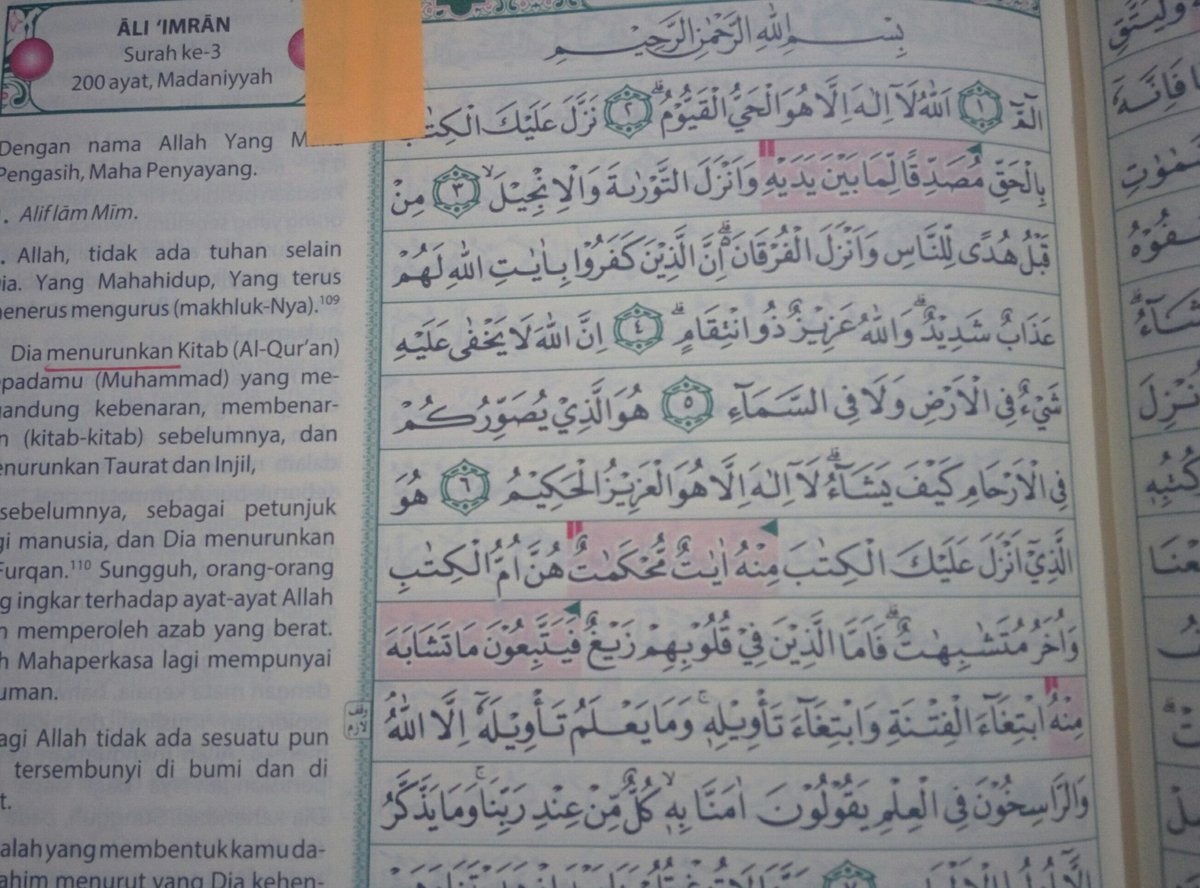 ĀLI ‘IMRĀN
Surah ke-3
200 ayat, Madaniyyah
Dengan nama Allah Yang
Pengasih, Maha Penyayang.
Alif lām Mīm.
Allah, tidak ada tuhan selain
Yang Mahahidup, Yang terus
menerus mengurus (makhluk-Nya).109
Dia menurunkan Kitab (Al-Qur’an)
(Muhammad) yang me-
kebenaran, membenar-
(kitab-kitab) sebelumnya, dan
Taurat dan Injil,
sebelumnya, sebagai petunjuk
manusia, dan Dia menurunkan
Furqan.110 Sungguh, orang-orang
ingkar terhadap ayat-ayat Allah
memperoleh azab yang berat.
Mahaperkasa lagi mempunyai
Allah tidak ada sesuatu pun
tersembunyi di bumi dan di
yang membentuk kamu da-
menurut yang Dia kehen-
بِسْمِ اللّٰهِ الرَّحْمٰنِ الرَّحِيْمِ
الۤمّۤ ۝١ اَللّٰهُ لَآ اِلٰهَ اِلَّا هُوَ الْحَيُّ الْقَيُّوْمُۗ ۝٢ نَزَّلَ عَلَيْكَ الْكِتٰبَ
بِالْحَقِّ مُصَدِّقًا لِّمَا بَيْنَ يَدَيْهِ وَاَنْزَلَ التَّوْرٰىةَ وَالْاِنْجِيْلَۙ ۝٣ مِنْ
قَبْلُ هُدًى لِّلنَّاسِ وَاَنْزَلَ الْفُرْقَانَۗ اِنَّ الَّذِيْنَ كَفَرُوْا بِاٰيٰتِ اللّٰهِ لَهُمْ
عَذَابٌ شَدِيْدٌۗ وَاللّٰهُ عَزِيْزٌ ذُو انْتِقَامٍۗ ۝٤ اِنَّ اللّٰهَ لَا يَخْفٰى عَلَيْهِ
شَيْءٌ فِى الْاَرْضِ وَلَا فِى السَّمَاۤءِ ۝٥ هُوَ الَّذِيْ يُصَوِّرُكُمْ
فِى الْاَرْحَامِ كَيْفَ يَشَاۤءُۗ لَآ اِلٰهَ اِلَّا هُوَ الْعَزِيْزُ الْحَكِيْمُ ۝٦ هُوَ
الَّذِيْٓ اَنْزَلَ عَلَيْكَ الْكِتٰبَ مِنْهُ اٰيٰتٌ مُّحْكَمٰتٌ هُنَّ اُمُّ الْكِتٰبِ
وَاُخَرُ مُتَشٰبِهٰتٌۗ فَاَمَّا الَّذِيْنَ فِيْ قُلُوْبِهِمْ زَيْغٌ فَيَتَّبِعُوْنَ مَا تَشَابَهَ
مِنْهُ ابْتِغَاۤءَ الْفِتْنَةِ وَابْتِغَاۤءَ تَأْوِيْلِهٖۚ وَمَا يَعْلَمُ تَأْوِيْلَهٗٓ اِلَّا اللّٰهُ
وَالرَّاسِخُوْنَ فِى الْعِلْمِ يَقُوْلُوْنَ اٰمَنَّا بِهٖۙ كُلٌّ مِّنْ عِنْدِ رَبِّنَاۚ وَمَا يَذَّكَّرُ